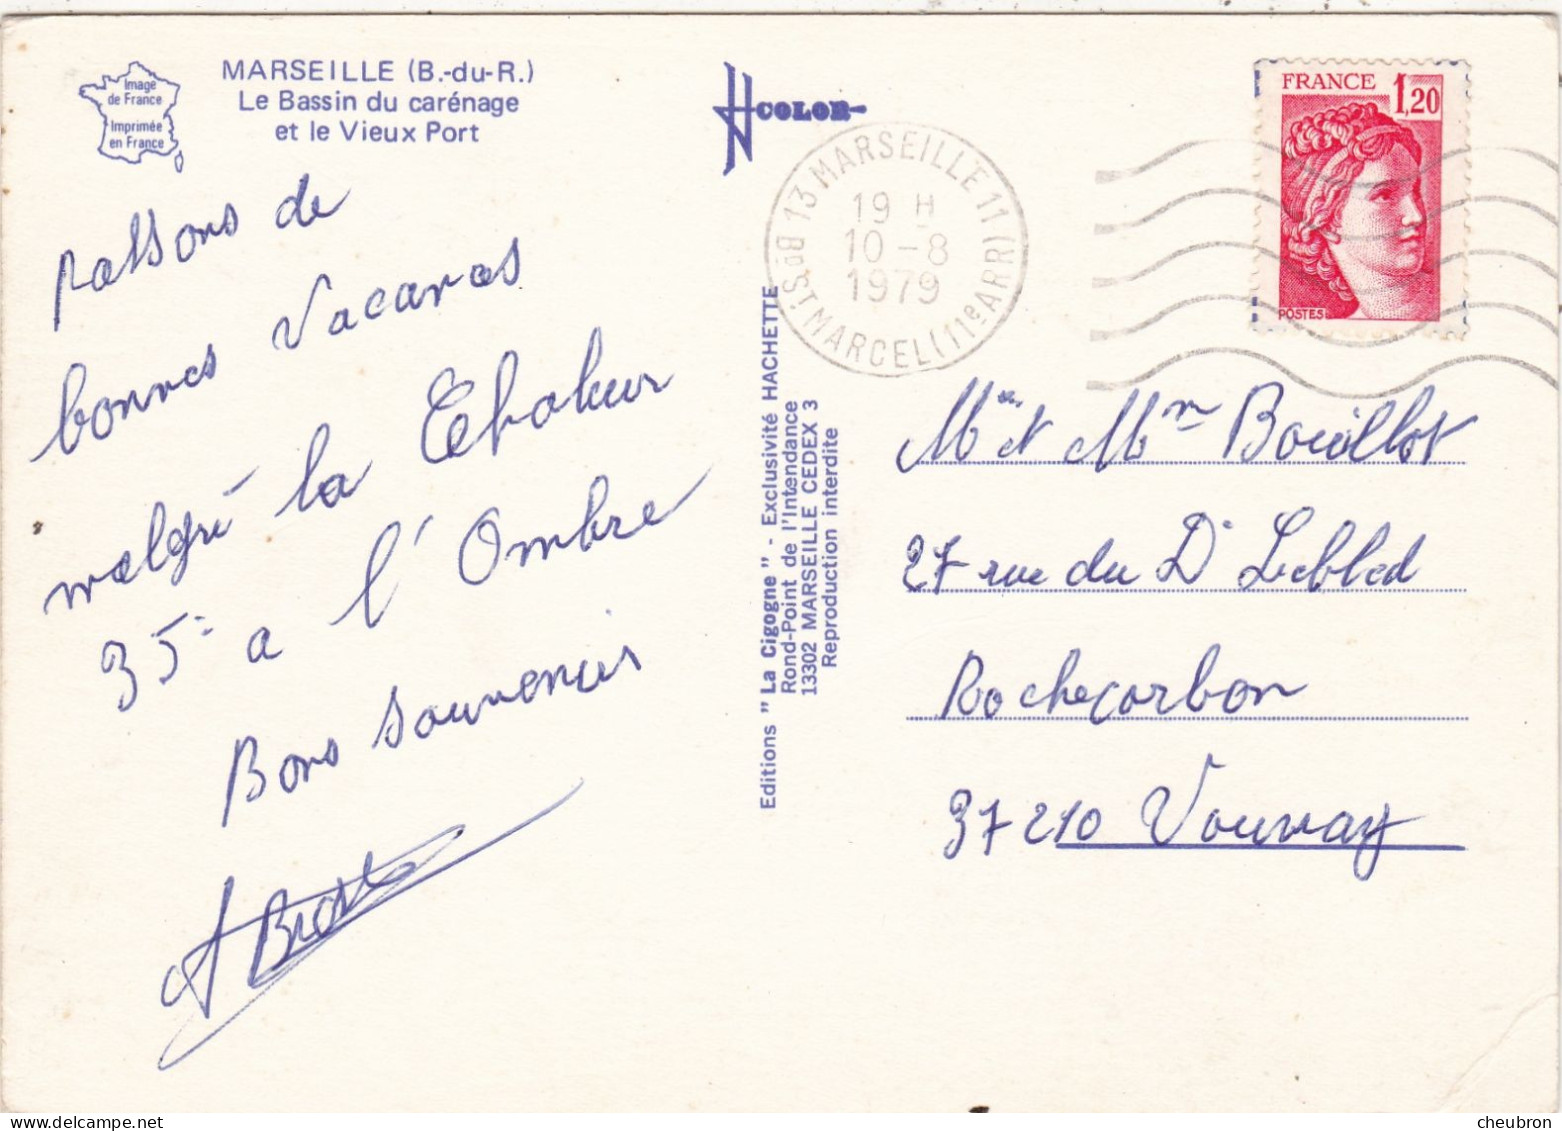 Image
de France
Imprimée
en France
MARSEILLE (B.-du-R.)
Le Bassin du carénage
et le Vieux Port
COLOR
13 MARSEILLE 11 (11e ARR) Bd ST MARCEL
19 H
10 - 8
1979
FRANCE 1,20
POSTES
passons de
bonnes Vacances
malgré la Chaleur
35° a l'Ombre
Bons souvenirs
Editions " La Cigogne " - Exclusivité HACHETTE
Rond-Point de l'Intendance
13302 MARSEILLE CEDEX 3
Reproduction interdite
Mr et Mme Bouillot
27 rue du Dr Lebled
Rochecorbon
37210 Vouvray
cheubron